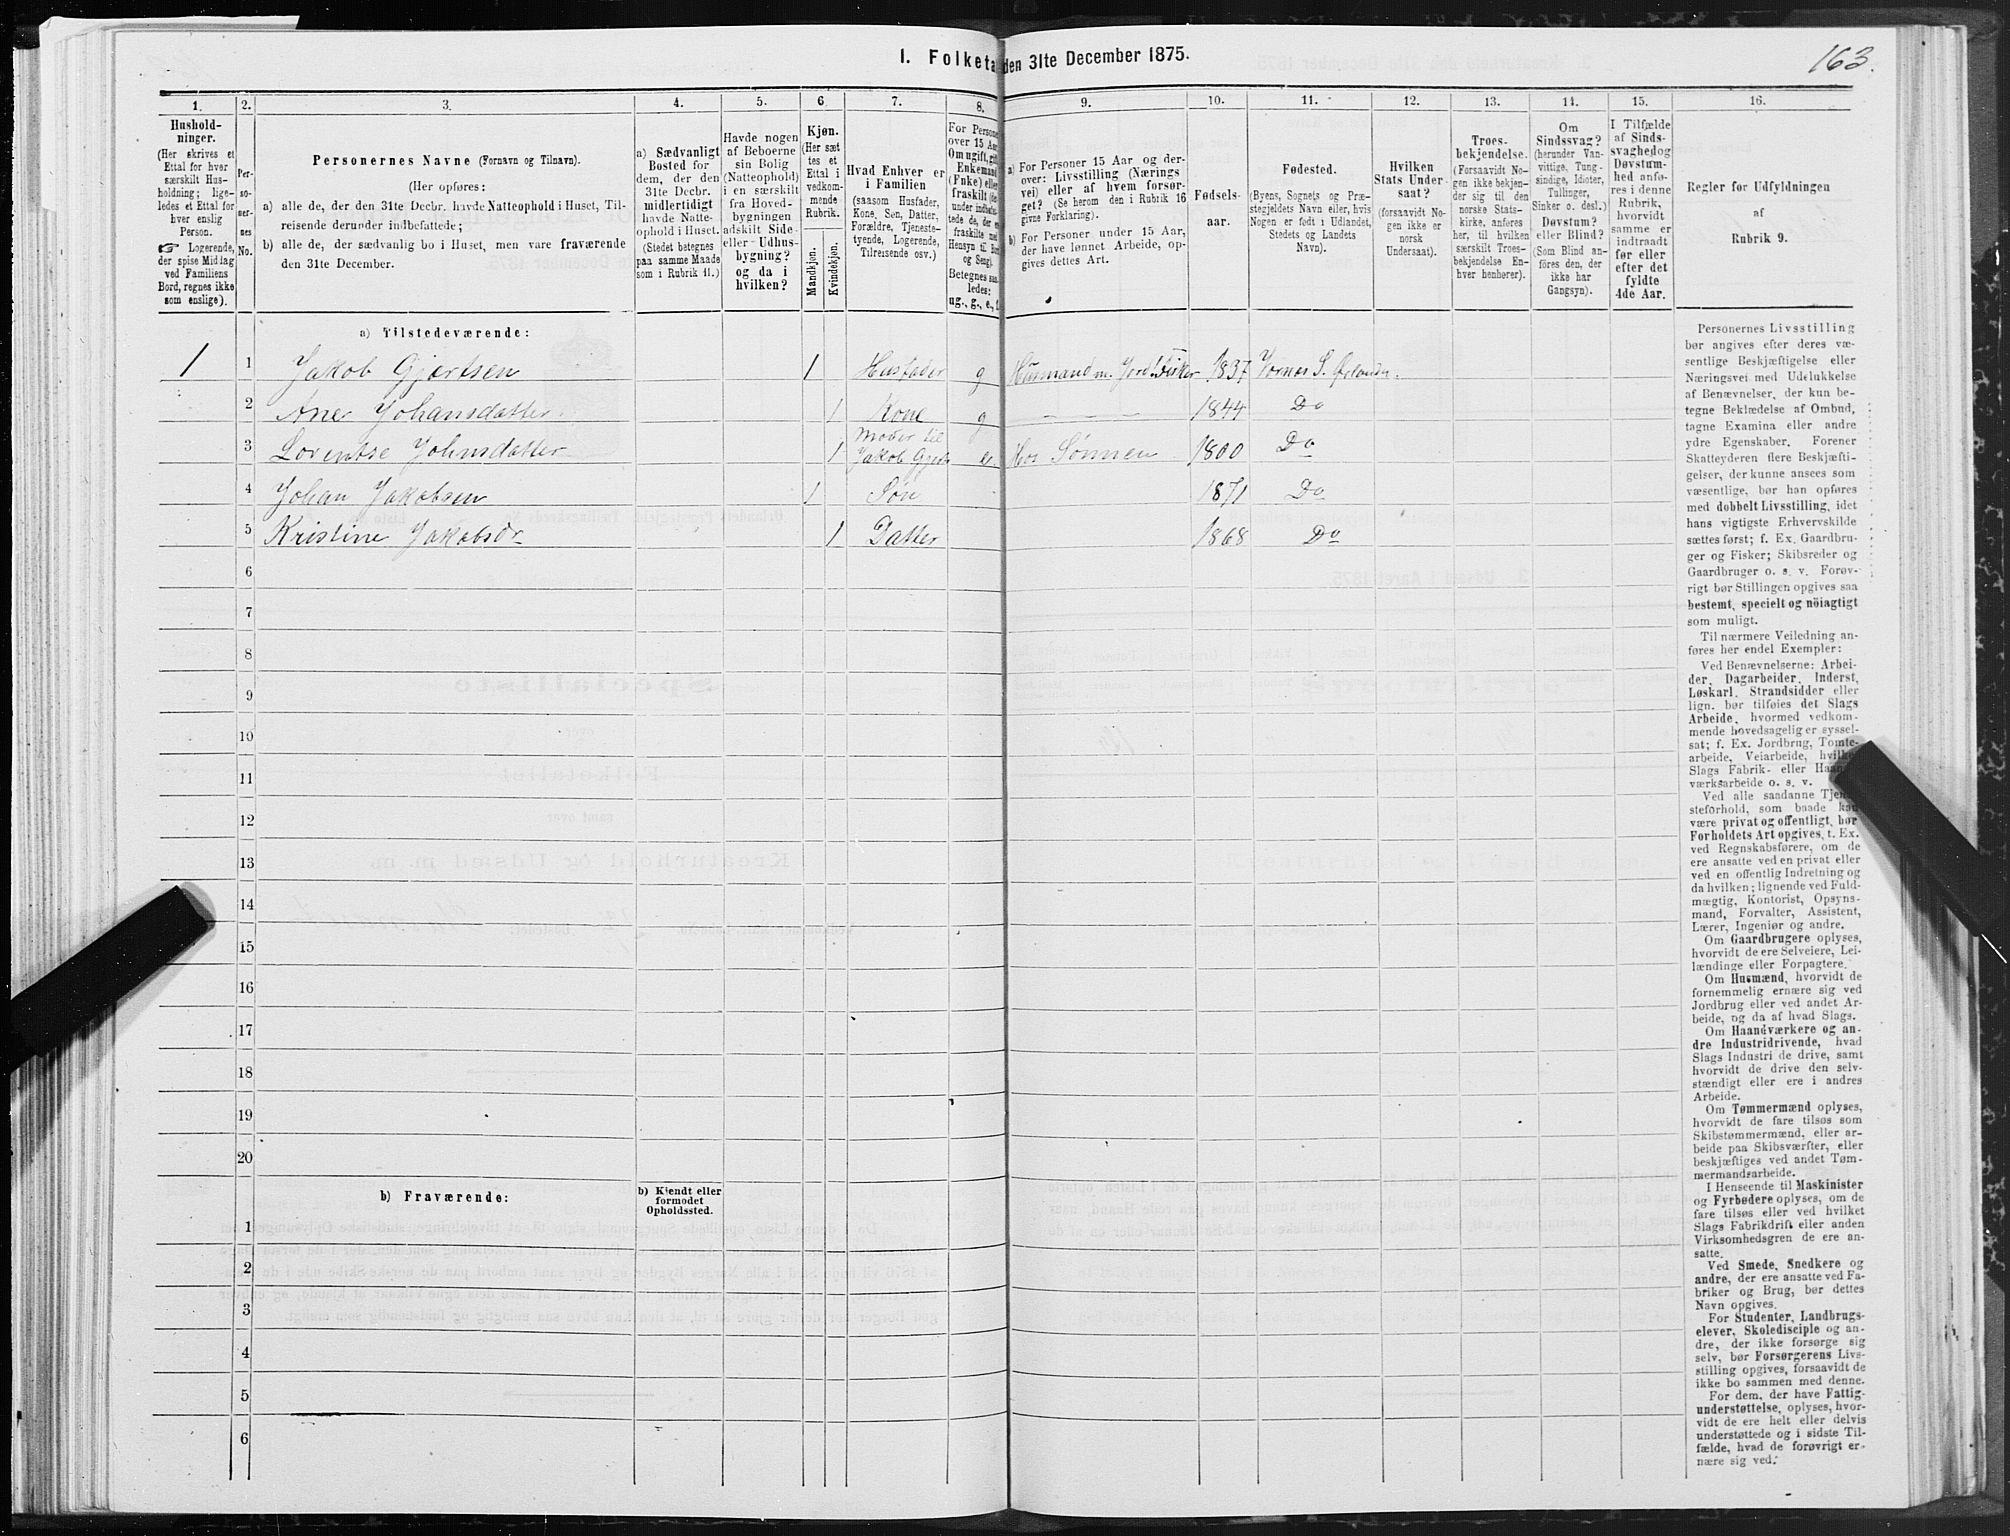 163.
I. Folketa den 31te December 1875.
1. 2. 3. 4. 5. 6. 7. 8. 9. 10. 11. 12. 13. 14. 15. 16.
Hushold-
ninger.
(Her skrives et
Ettal for hver
særskilt Hus-
holdning; lige-
ledes et Ettal for
hver enslig
Person.
☞ Logerende,
der spise Middag
ved Familiens
Bord, regnes ikke
som enslige).
Per-
so-
ner-
nes
No.
Personernes Navne (Fornavn og Tilnavn).
(Her opføres:
a) alle de, der den 31te Decbr. havde Natteophold i Huset, Til-
reisende derunder indbefattede;
b) alle de, der sædvanlig bo i Huset, men vare fraværende
den 31te December.
a) Sædvanligt
Bosted for
dem, der den
31te Decbr.
midlertidigt
havde Natte-
ophold i Huset.
(Stedet betegnes
paa samme Maade
som i Rubrik 11.)
Havde nogen
af Beboerne
sin Bolig
(Natteophold)
i en særskilt
fra Hoved-
bygningen
adskilt Side-
eller Udhus-
bygning?
og da i
hvilken?
Kjøn.
(Her sæt
tes et
Ettal i
vedkom-
mende
Rubrik.
Mandkjøn.
Kvindekjøn.
Hvad Enhver er
i Familien
(saasom Husfader,
Kone, Søn, Datter,
Forældre, Tjeneste-
tyende, Logerende,
Tilreisende osv.)
For Persone
over 15 Aa
Om ugift, gift
Enkemand
(Fnke) elle
fraskilt (de
under indbefat-
tede de, der er
fraskilte med
Hensyn til Bord
og Seng).
Betegnes saa
ledes:
ug., g., e., f
a) For Personer 15 Aar og der-
over: Livsstilling (Nærings
vei) eller af hvem forsør-
get? (Se herom den i Rubrik 16
givne Forklaring).
b) For Personer under 15 Aar,
der have lønnet Arbeide, op-
gives dettes Art.
Fødsels-
aar.
Fødested.
(Byens, Sognets og Præ-
stegjeldets Navn eller, hvis
Nogen er født i Udlandet,
Stedets og Landets
Navn).
Hvilken
Stats Under-
saat?
(forsaavidt No-
gen ikke er
norsk
Undersaat).
Troes-
bekjendelse.
(Forsaavidt No-
gen ikke bekjen-
der sig til den
norske Stats-
kirke, anføres
her, til hvilken
særskilt Troes-
bekjendelse En-
hver henhører).
Om
Sindssvag?
(herunder Van-
vittige, Tung-
sindige, Idioter,
Tullinger,
Sinker o. desl.)
Døvstum?
eller Blind?
(Som Blind an-
føres den, der
ikke har
Gangsyn).
I Tilfælde
af Sinds-
svaghed og
Døvstum-
hed anfø-
res i denne
Rubrik,
hvorvidt
samme er
indtraadt
før eller
efter det
fyldte
4de Aar.
Regler for Udfyldningen
af
Rubrik 9.
a) Tilstedeværende:
1 1 Jakob Gjertsen 1 Husfader g Husmand m. Jord Fisker 1837 Vornes S. Ørlandet.
2 Ane Johansdatter 1 Kone g 1844 Do
3 Lorentse Johnsdatter 1 Moder til Jakob Gjerts e. Hos Sønnen 1800 Do
4 Johan Jakobsen 1 Søn 1871 Do
5 Kristine Jakobsdr 1 Datter 1868 Do
6
7
8
9
10
11
12
13
14
15
16
17
18
19
20
b) Fraværende:
b) Kjendt eller
formodet
Opholdssted.
1
2
3
4
5
6
Personernes Livsstilling
bør angives efter deres væ-
sentlige Beskjæftigelse eller
Næringsvei med Udelukkelse
af Benævnelser, der kun be-
tegne Beklædelse af Ombud,
tagne Examina eller andre
ydre Egenskaber. Forener
Skatteyderen flere Beskjæfti-
gelser, der kunne ansees som
væsentlige, bør han opføres
med dobbelt Livsstilling, idet
hans vigtigste Erhvervskilde
sættes først; f. Ex. Gaardbru-
ger og Fisker; Skibsreder og
Gaardbruger o. s. v. Forøv-
rigt bør Stillingen opgives saa
bestemt, specielt og nöiagtigt
som muligt.
Til nærmere Veiledning an-
føres her endel Exempler:
Ved Benævnelserne: Arbei-
der, Dagarbeider, Inderst,
Løskarl, Strandsidder eller
lign. bør tilføies det Slags
Arbeide, hvormed vedkom-
mende hovedsagelig er syssel-
sat; f. Ex. Jordbrug, Tomte-
arbeide, Veiarbeide, hvilket
Slags Fabrik- eller Haand-
værksarbeide o. s. v.
Ved alle saadanne Tjene-
steforhold, som baade kan
være privat og offentligt, bør
Forholdets Art opgives, t. Ex.
ved Regnskabsførere, om de
ere ansatte ved en privat eller
ved en offentlig Indretning og
da hvilken; lignende ved Fuld-
mægtig, Kontorist, Opsyns-
mand, Forvalter, Assistent,
Lærer, Ingeniør og andre.
Om Gaardbrugere oplyses,
hvorvidt de ere Selveiere, Lei-
lændinge eller Forpagtere.
Om Husmænd, hvorvidt de
fornemmelig ernære sig ved
Jordbrug eller ved andet Ar-
beide, og da af hvad Slags.
Om Haandværkere og an-
dre Industridrivende, hvad
Slags Industri de drive, samt
hvorvidt de drive den selv-
stændigt eller ere i andres
Arbeide.
Om Tømmermænd oplyses,
hvorvidt de fare tilsøs som
Skibstømmermænd, eller ar-
beide paa Skibsværfter, eller
beskjæftiges ved andet Tøm-
mermandsarbeide.
I Henseende til Maskinister
og Fyrbødere oplyses, om de
fare tilsøs eller ved hvilket
Slags Fabrikdrift eller anden
Virksomhedsgren de ere an-
satte.
Ved Smede, Snedkere og
andre, der ere ansatte ved Fa-
briker og Brug, bør dettes
Navn opgives.
For Studenter, Landbrugs-
elever, Skoledisciple og an-
dre, der ikke forsørge sig
selv, bør Forsørgerens Livs-
stilling opgives, forsaavidt de
ikke bo sammen med denne.
For dem, der have Fattig-
understøttelse, oplyses, hvor-
vidt de ere helt eller delvis
understøttede og i sidste Til-
fælde, hvad de forøvrigt er-
nære sig ved.